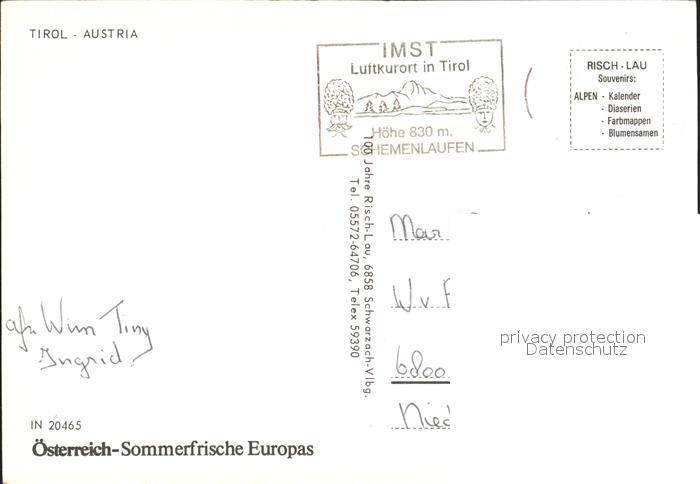 TIROL - AUSTRIA
IMST
Luftkurort in Tirol
Höhe 830 m.
SCHEMENLAUFEN
RISCH-LAU
Souvenirs:
ALPEN - Kalender
- Diaserien
- Farbmappen
- Blumensamen
100 Jahre Risch-Lau, 6858 Schwarzach-Vlbg.
Tel. 05572-64706, Telex 59390
Mar
W v F
6800
Nied
privacy protection
Datenschutz
afz Wim Tiny
Ingrid.
IN 20465
Österreich-Sommerfrische Europas